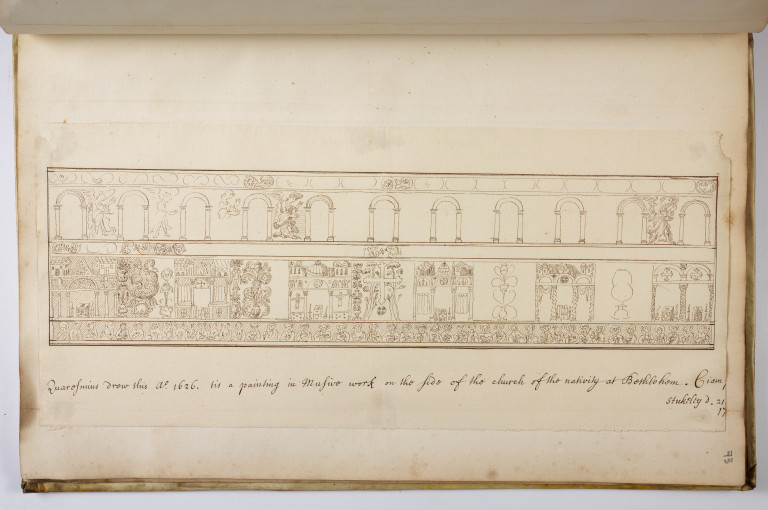 Quaresmius drew this Aº 1626. tis a painting in Musive work on the side of the church of the nativity at Bethlehem. Ciam,
Stukeley d. 21
17